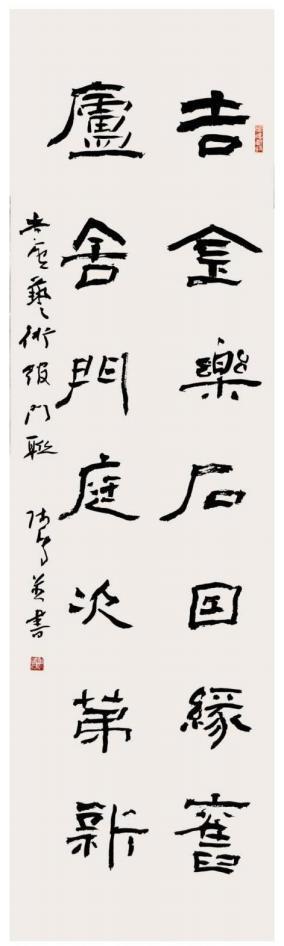 吉金樂石因緣舊
廬舍門庭次第新
吉廬藝術館門聯 並書